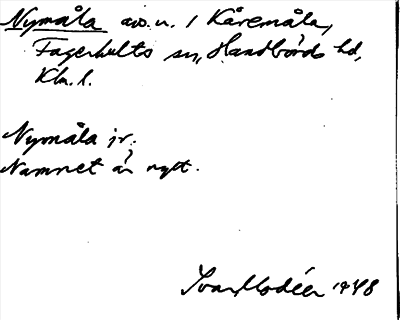 Nymåla avs. u. 1 Kåremåla,
Fagerhults sn, Handbörds hd,
Klm. l.
Nymåla jr.
Namnet är nytt.
Ivar Modéer 1948